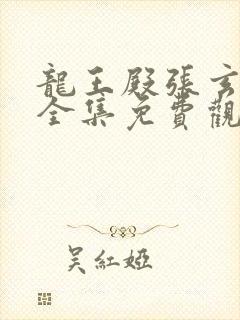 龍王殿張玄
全集免費觀
吴紅婭